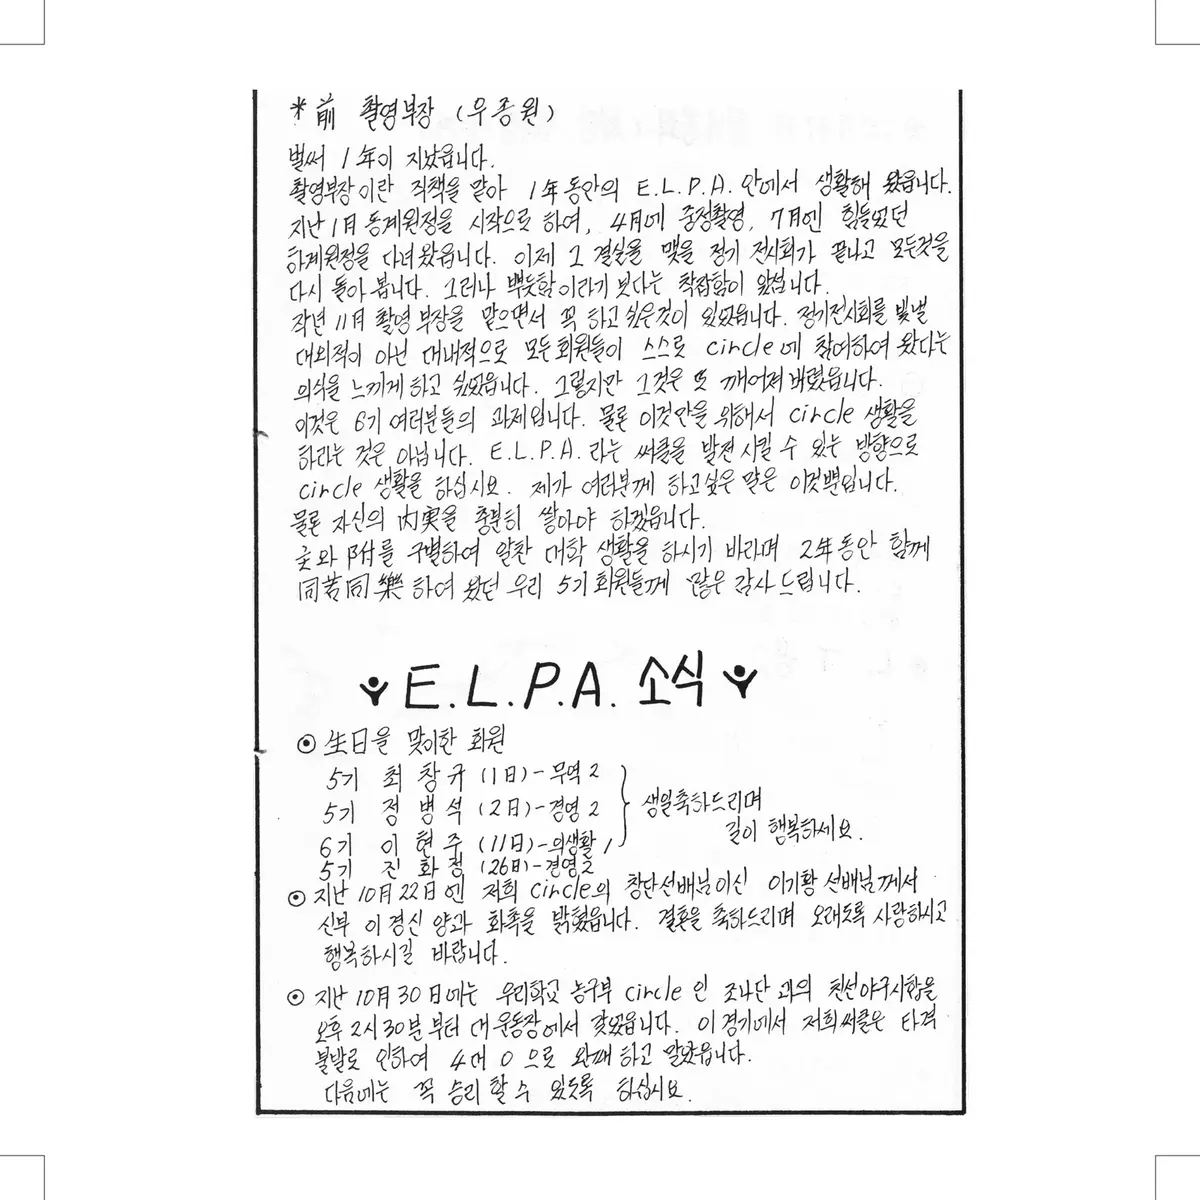 * 前 촬영부장 (우종원)
벌써 1年이 지났읍니다.
촬영부장이란 직책을 맡아 1年동안의 E.L.P.A. 안에서 생활해 왔읍니다.
지난 1月 동계원정을 시작으로 하여, 4月에 중정촬영, 7月엔 힘들었던
하계원정을 다녀왔읍니다. 이제 그 결실을 맺을 정기 전시회가 끝나고 모든것을
다시 돌아 봅니다. 그러나 뿌듯함이라기 보다는 착잡함이 앞섭니다.
작년 11月 촬영 부장을 맡으면서 꼭 하고싶은것이 있었읍니다. 정기전시회를 빛낼
대외적이 아닌 대내적으로 모든회원들이 스스로 circle에 참여하여 왔다는
의식을 느끼게 하고 싶었읍니다. 그렇지만 그것은 또 깨어져 버렸읍니다.
이것은 6기 여러분들의 과제입니다. 물론 이것만을 위해서 circle 생활을
하라는 것은 아닙니다. E.L.P.A. 라는 써클을 발전 시킬 수 있는 방향으로
circle 생활을 하십시요. 제가 여러분께 하고싶은 말은 이것뿐입니다.
물론 자신의 内実을 충분히 쌓아야 하겠읍니다.
主와 附를 구별하여 알찬 대학 생활을 하시기 바라며 2年동안 함께
同苦同樂 하여 왔던 우리 5기 회원들께 많은 감사드립니다.
E.L.P.A. 소식
⊙ 生日을 맞이한 회원
5기 최창규 (1日)-무역2
5기 정병석 (2日)-경영2 생일축하드리며
길이 행복하세요.
6기 이현주 (11日)-의생활1
5기 진화정 (26日)-경영2
⊙ 지난 10月 22日엔 저희 circle의 창단선배님이신 이기황 선배님께서
신부 이경신 양과 화촉을 밝혔읍니다. 결혼을 축하드리며 오래도록 사랑하시고
행복하시길 바랍니다.
⊙ 지난 10月 30日에는 우리학교 농구부 circle 인 조나단 과의 친선야구시합을
오후 2시 30분부터 대운동장에서 갖었읍니다. 이 경기에서 저희써클은 타격
불발로 인하여 4대 0 으로 완패 하고 말았읍니다.
다음에는 꼭 승리 할 수 있도록 하십시요.